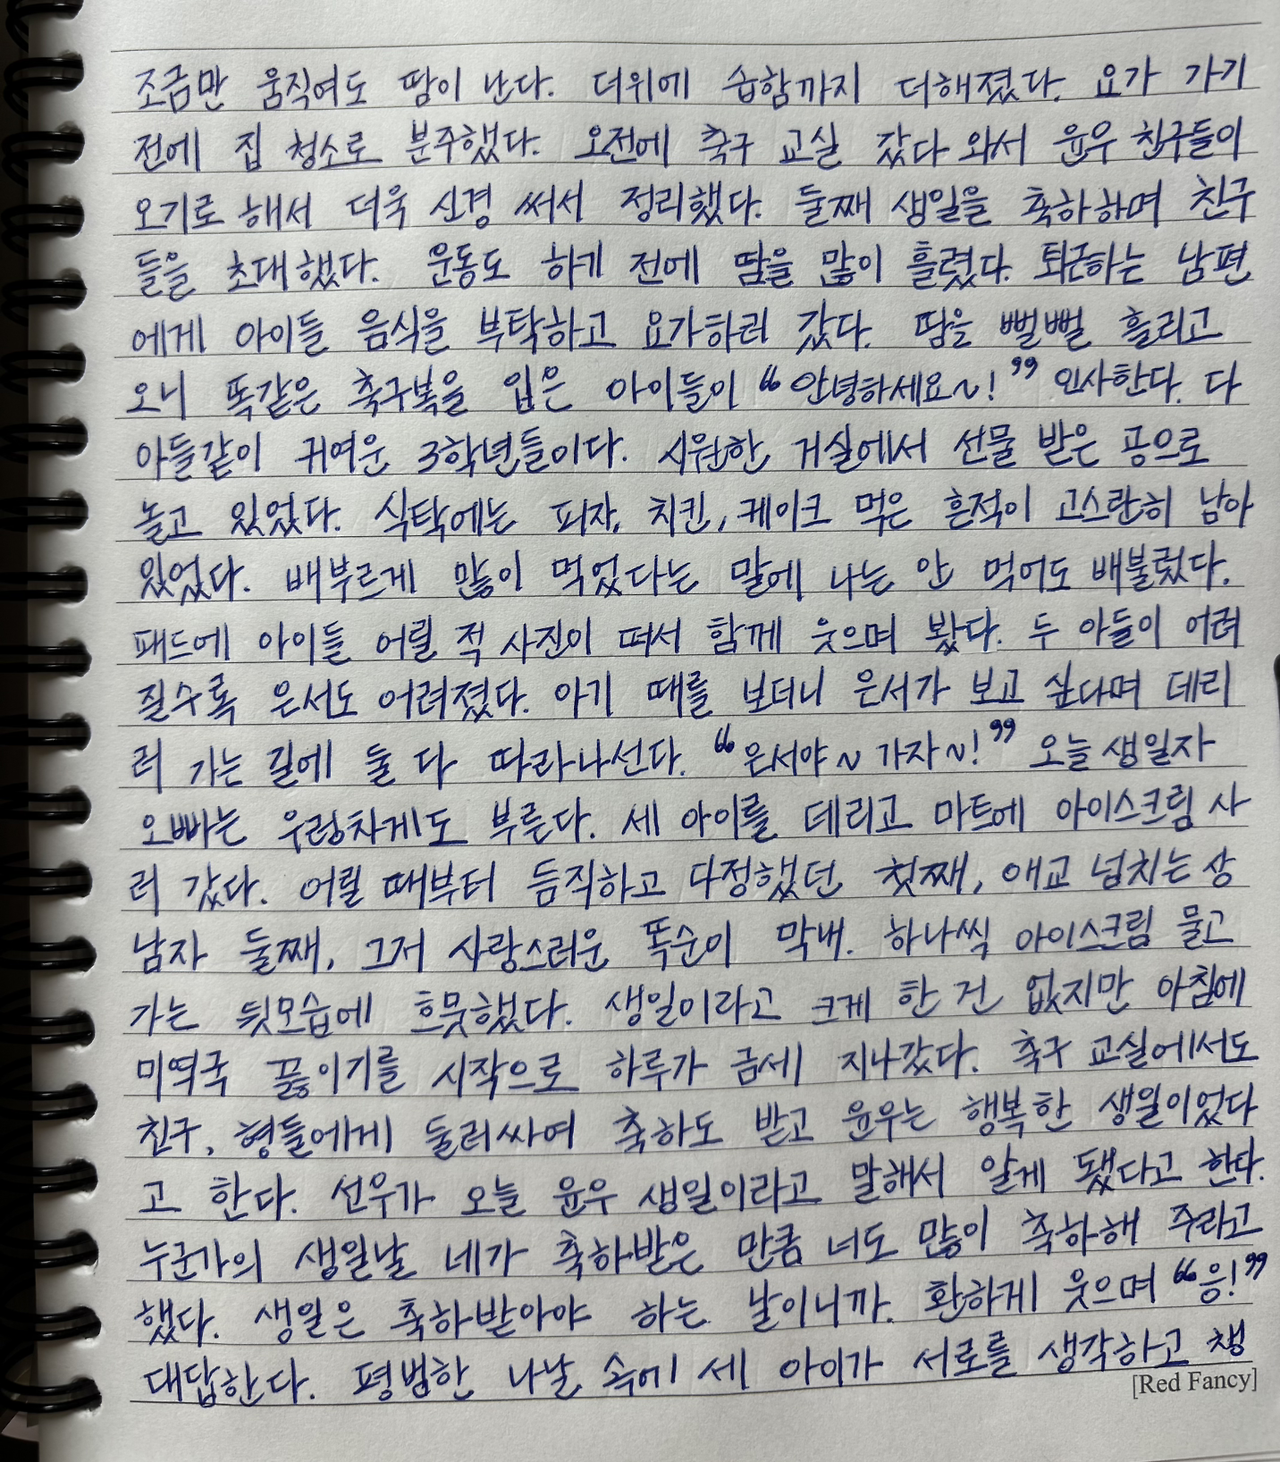 조금만 움직여도 땀이 난다. 더위에 습함까지 더해졌다. 요가 가기
전에 집 청소로 분주했다. 오전에 축구 교실 갔다 와서 윤우 친구들이
오기로 해서 더욱 신경 써서 정리했다. 둘째 생일을 축하하며 친구
들을 초대했다. 운동도 하기 전에 땀을 많이 흘렸다. 퇴근하는 남편
에게 아이들 음식을 부탁하고 요가하러 갔다. 땀을 뻘뻘 흘리고
오니 똑같은 축구복을 입은 아이들이 “안녕하세요~!” 인사한다. 다
아들같이 귀여운 3학년들이다. 시원한 거실에서 선물 받은 공으로
놀고 있었다. 식탁에는 피자, 치킨, 케이크 먹은 흔적이 고스란히 남아
있었다. 배부르게 많이 먹었다는 말에 나는 안 먹어도 배불렀다.
패드에 아이들 어릴 적 사진이 떠서 함께 웃으며 봤다. 두 아들이 어려
질수록 은서도 어려졌다. 아기 때를 보더니 은서가 보고 싶다며 데리
러 가는 길에 둘 다 따라나선다. “은서야~ 가자~!” 오늘 생일자
오빠는 우렁차게도 부른다. 세 아이를 데리고 마트에 아이스크림 사
러 갔다. 어릴 때부터 듬직하고 다정했던 첫째, 애교 넘치는 상
남자 둘째, 그저 사랑스러운 똑순이 막내. 하나씩 아이스크림 물고
가는 뒷모습에 흐뭇했다. 생일이라고 크게 한 건 없지만 아침에
미역국 끓이기를 시작으로 하루가 금세 지나갔다. 축구 교실에서도
친구, 형들에게 둘러싸여 축하도 받고 윤우는 행복한 생일이었다
고 한다. 선우가 오늘 윤우 생일이라고 말해서 알게 됐다고 한다.
누군가의 생일날 네가 축하받은 만큼 너도 많이 축하해 주라고
했다. 생일은 축하받아야 하는 날이니까. 환하게 웃으며 “응!”
대답한다. 평범한 나날 속에 세 아이가 서로를 생각하고 챙
[Red Fancy]